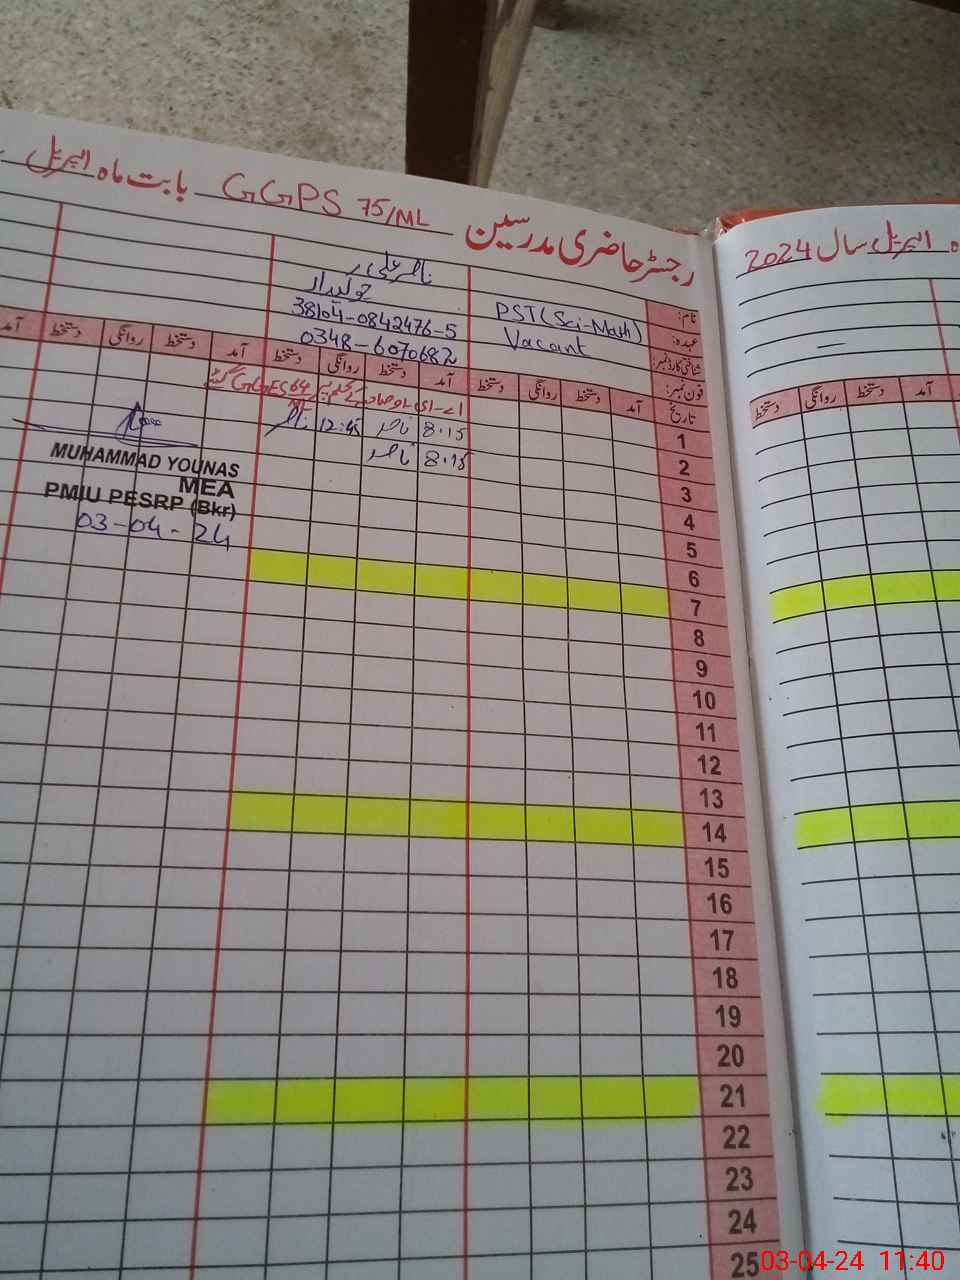 رجسٹر حاضری مدرسین GGPS 75/ML بابت ماہ اپریل
ماہ اپریل سال 2024
نام:
PST (Sci-Math)
ناصر علی
عہدہ:
Vacant
چوکیدار
شناختی کارڈ نمبر:
38104-0842476-5
فون نمبر:
0348-6070682
تاریخ
آمد دستخط روانگی دستخط
آمد دستخط روانگی دستخط
آمد دستخط روانگی دستخط
آمد
آمد دستخط روانگی دستخط
1
GGES 64
2
8.15 ناصر 12:45 ناصر
3
8.15 ناصر
4
5
6
7
8
9
10
11
12
13
14
15
16
17
18
19
20
21
22
23
24
25
MUHAMMAD YOUNAS
MEA
PMIU PESRP (Bkr)
03-04-24
03-04-24 11:40